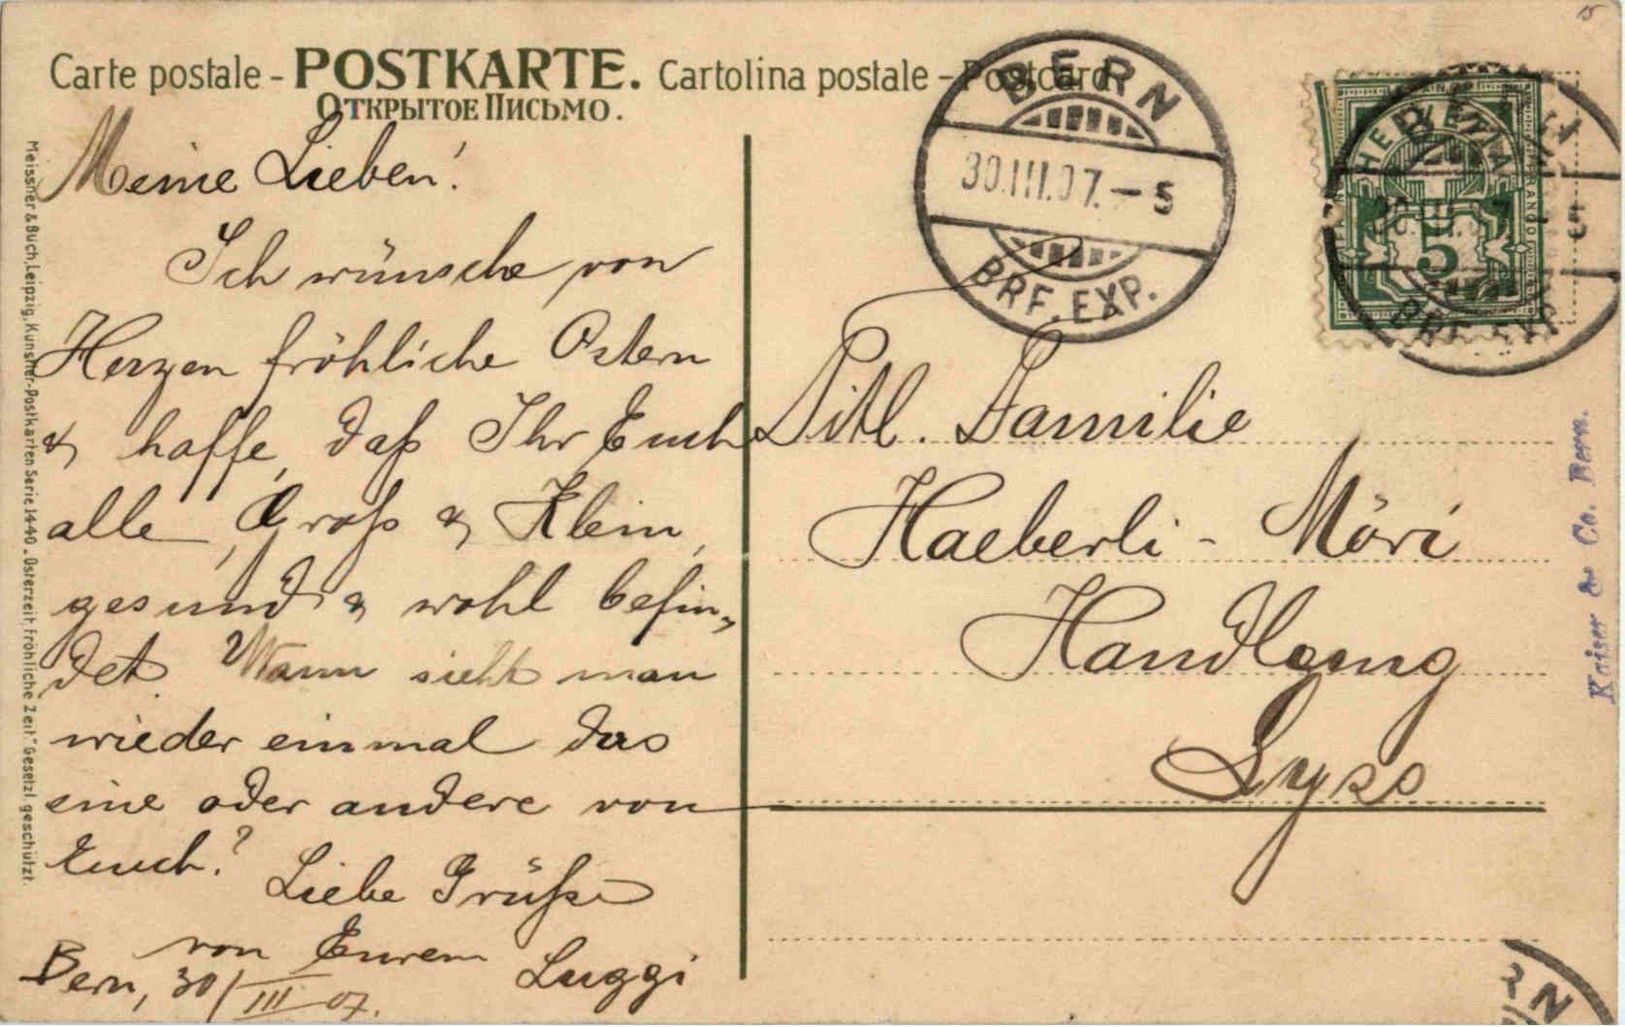 Carte postale - POSTKARTE. Cartolina postale - Postcard
ОТКРЫТОЕ ПИСЬМО.
Meine Lieben!
Ich wünsche von
Herzen fröhliche Ostern
& hoffe, daß Ihr Euch
alle, Groß & Klein,
gesund & wohl befin-
det. Wann sieht man
wieder einmal das
eine oder andere von
Euch?
Liebe Grüße
von Eurem Luggi
Bern, 30/III 07.
Meissner & Buch, Leipzig, Künstler-Postkarten Serie 1440. „Osterzeit, fröhliche Zeit" Gesetzl. geschützt.
BERN
30.III.07.-5
BRF. EXP.
HELVETIA
5
BRF. EXP.
Titl. Familie
Haeberli - Möri
Handlung
Lyss
Kaiser & Co. Bern.
RN